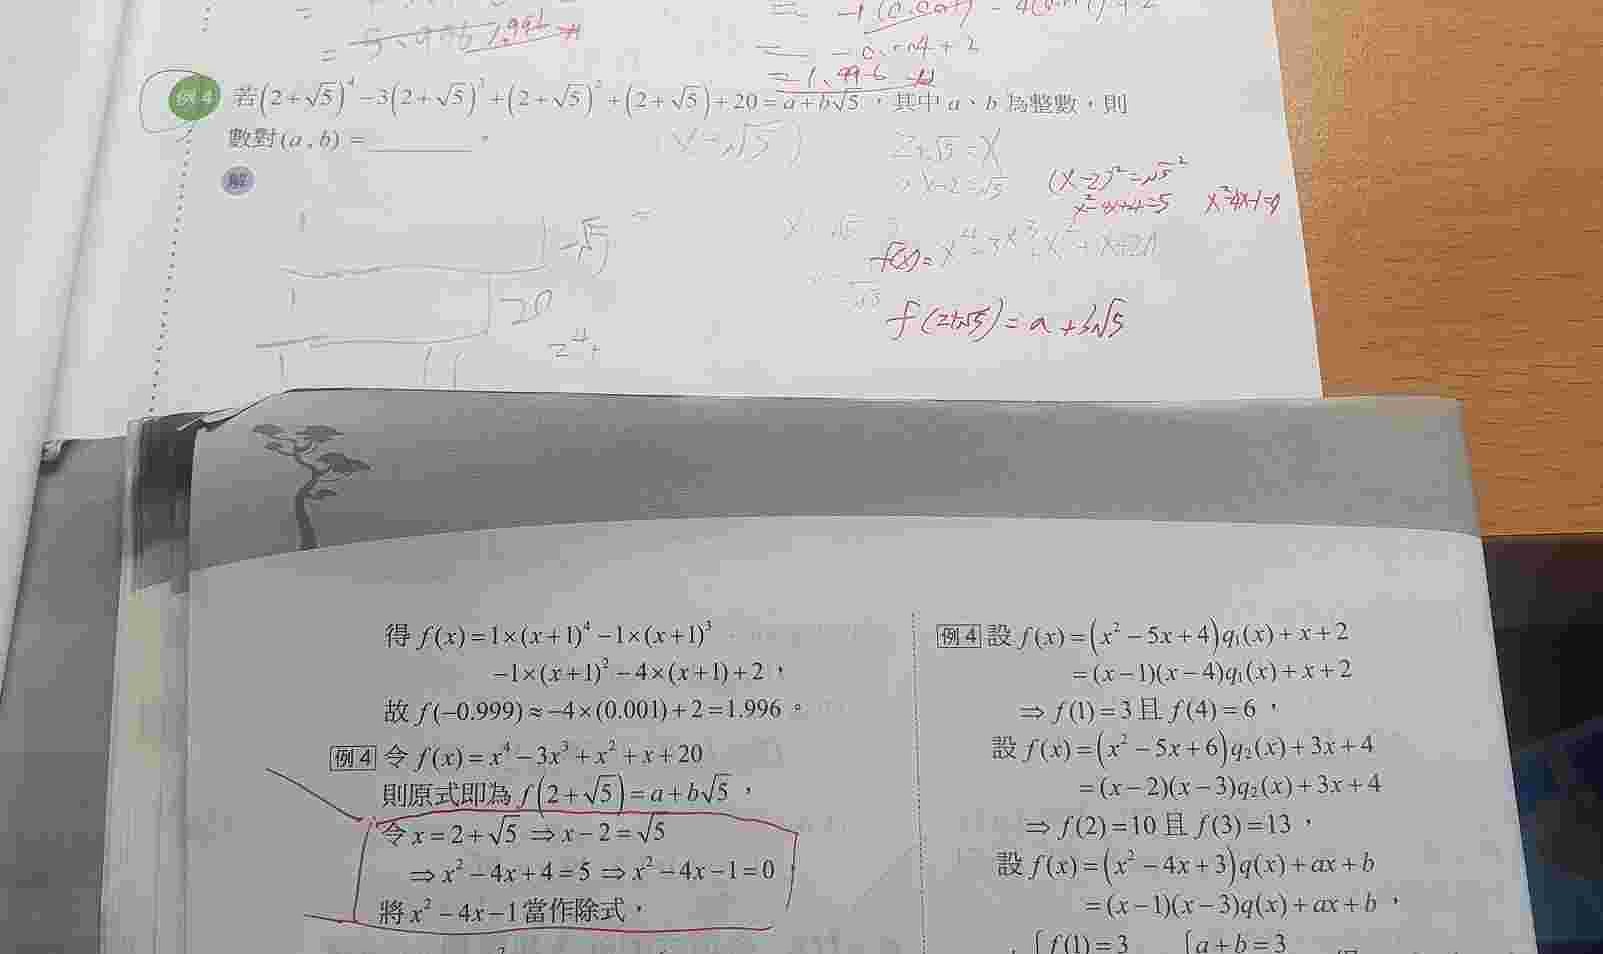 = 5.996 1.996 #
= -0.004 + 2
= 1.996 #
例4 若(2+√5)⁴-3(2+√5)³+(2+√5)²+(2+√5)+20=a+b√5,其中a、b為整數,則
數對(a,b)=________。
(x-√5)
2+√5=x
x-2=√5
(x-2)²=√5²
x²-4x+4=5 x²-4x-1=0
解
-√5
f(x)=x⁴-3x³+x²+x+20
20
f(2+√5)=a+b√5
得f(x)=1×(x+1)⁴-1×(x+1)³
-1×(x+1)²-4×(x+1)+2,
故f(-0.999)≈-4×(0.001)+2=1.996。
例4 令f(x)=x⁴-3x³+x²+x+20
則原式即為f(2+√5)=a+b√5,
令x=2+√5⇒x-2=√5
⇒x²-4x+4=5⇒x²-4x-1=0
將x²-4x-1當作除式,
例4 設f(x)=(x²-5x+4)q₁(x)+x+2
=(x-1)(x-4)q₁(x)+x+2
⇒f(1)=3且f(4)=6,
設f(x)=(x²-5x+6)q₂(x)+3x+4
=(x-2)(x-3)q₂(x)+3x+4
⇒f(2)=10且f(3)=13,
設f(x)=(x²-4x+3)q(x)+ax+b
=(x-1)(x-3)q(x)+ax+b,
f(1)=3 a+b=3